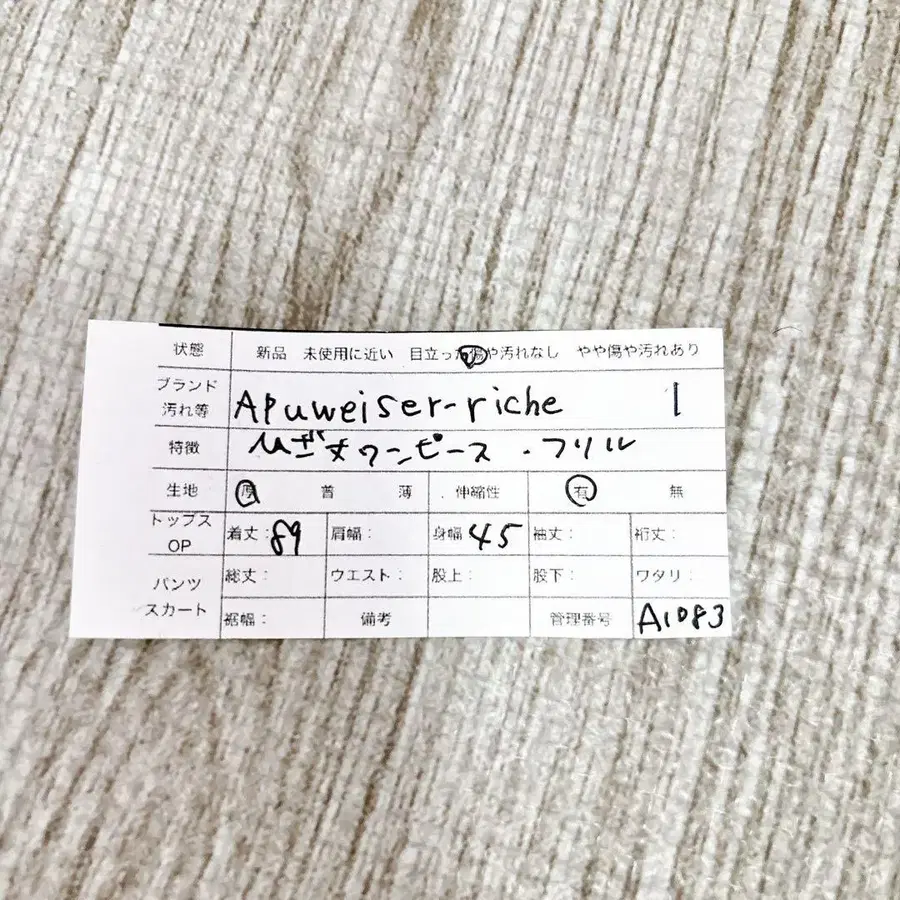 状態 新品 未使用に近い 目立った傷や汚れなし やや傷や汚れあり
ブランド
汚れ等 Apuweiser-riche 1
特徴 ひざ丈ワンピース ・フリル
生地 厚 普 薄 伸縮性 有 無
トップス
OP 着丈：89 肩幅： 身幅 45 袖丈： 裄丈：
パンツ
スカート 総丈： ウエスト： 股上： 股下： ワタリ：
裾幅： 備考 管理番号 A1083